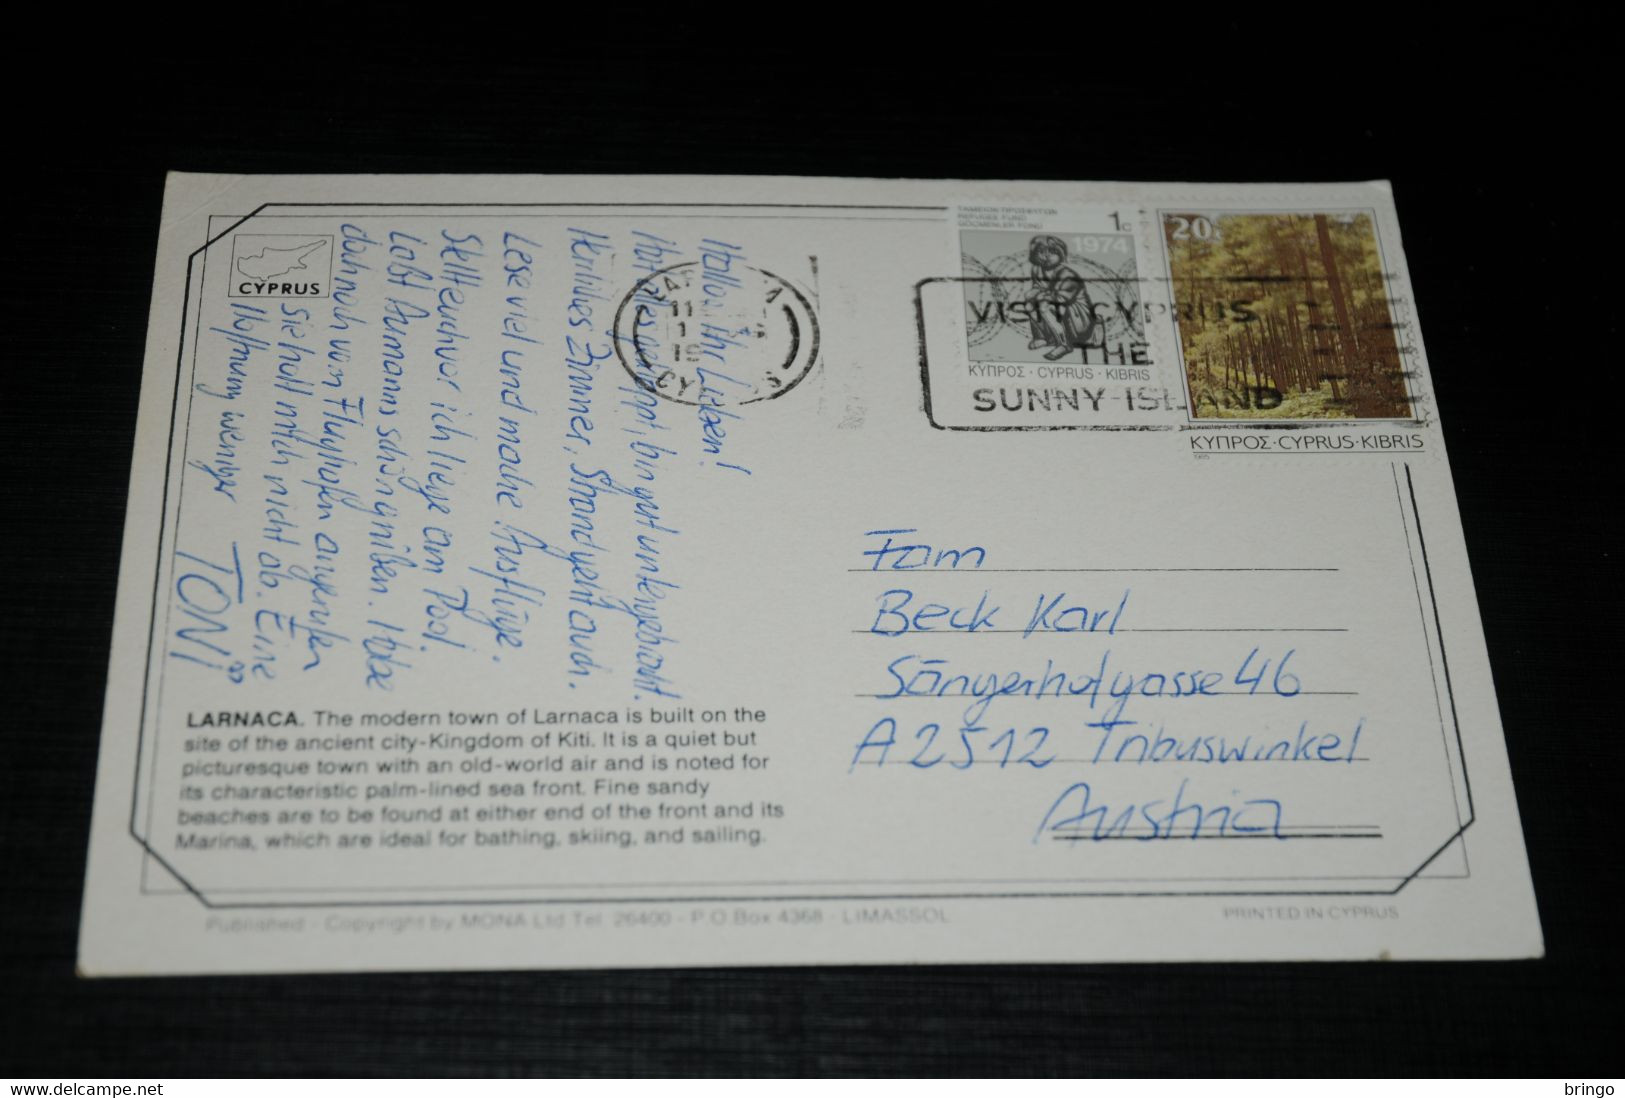 CYPRUS
Hallo Ihr Lieben!
Hat alles geklappt, bin gut untergebracht.
Herrliches Zimmer, Strand geht auch.
Lese viel und mache Ausflüge.
Stellt euch vor ich liege am Pool.
Laßt Armanns schön grüßen. Habe
danach von Flughafen angerufen
Sie holt mich nicht ab. Eine
Hoffnung weniger
TONi
LARNACA. The modern town of Larnaca is built on the
site of the ancient city-Kingdom of Kiti. It is a quiet but
picturesque town with an old-world air and is noted for
its characteristic palm-lined sea front. Fine sandy
beaches are to be found at either end of the front and its
Marina, which are ideal for bathing, skiing, and sailing.
Published - Copyright by MONA Ltd Tel. 26400 - P.O.Box 4368 - LIMASSOL
PRINTED IN CYPRUS
11
CYPRUS
ΤΑΜΕΙΟΝ ΠΡΟΣΦΥΓΩΝ
REFUGEE FUND
GÖÇMENLER FONU
1c
1974
ΚΥΠΡΟΣ · CYPRUS · KIBRIS
20c
ΚΥΠΡΟΣ·CYPRUS·KIBRIS
1985
VISIT CYPRUS
THE
SUNNY ISLAND
Fam
Beck Karl
Sängerhofgasse 46
A 2512 Tribuswinkel
Austria
bringo